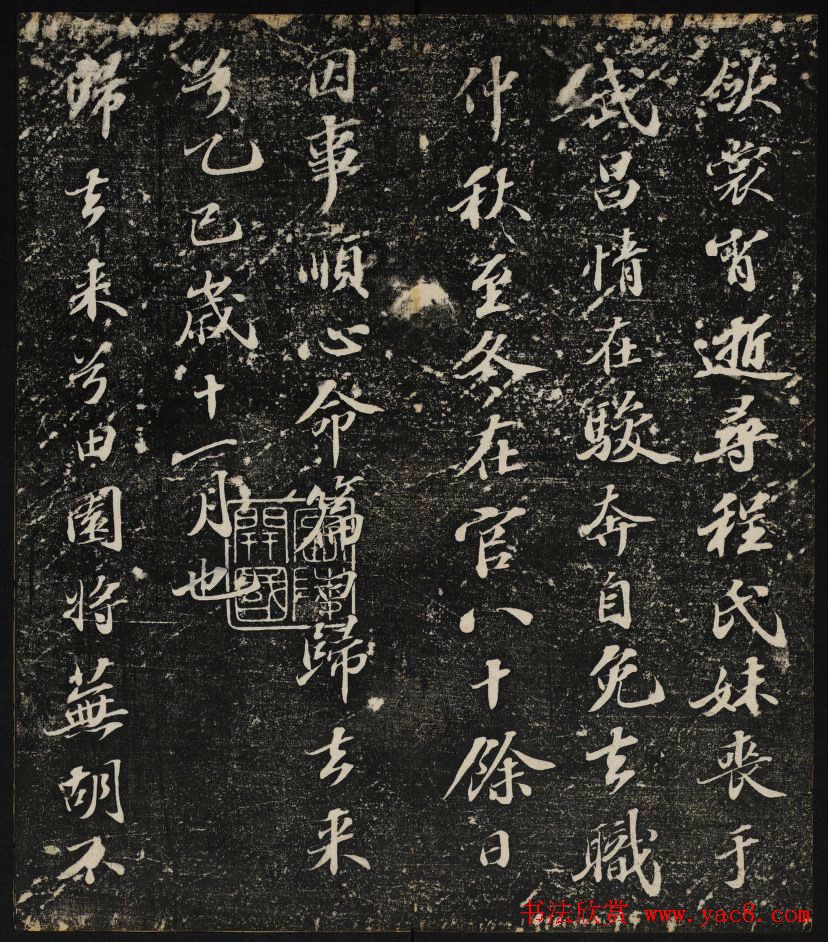 歛裳宵逝尋程氏妹喪于
武昌情在駿奔自免去職
仲秋至冬在官八十餘日
因事順心命篇曰歸去來
兮乙巳歲十一月也
歸去來兮田園將蕪胡不
開國
书法欣赏 www.yac8.com